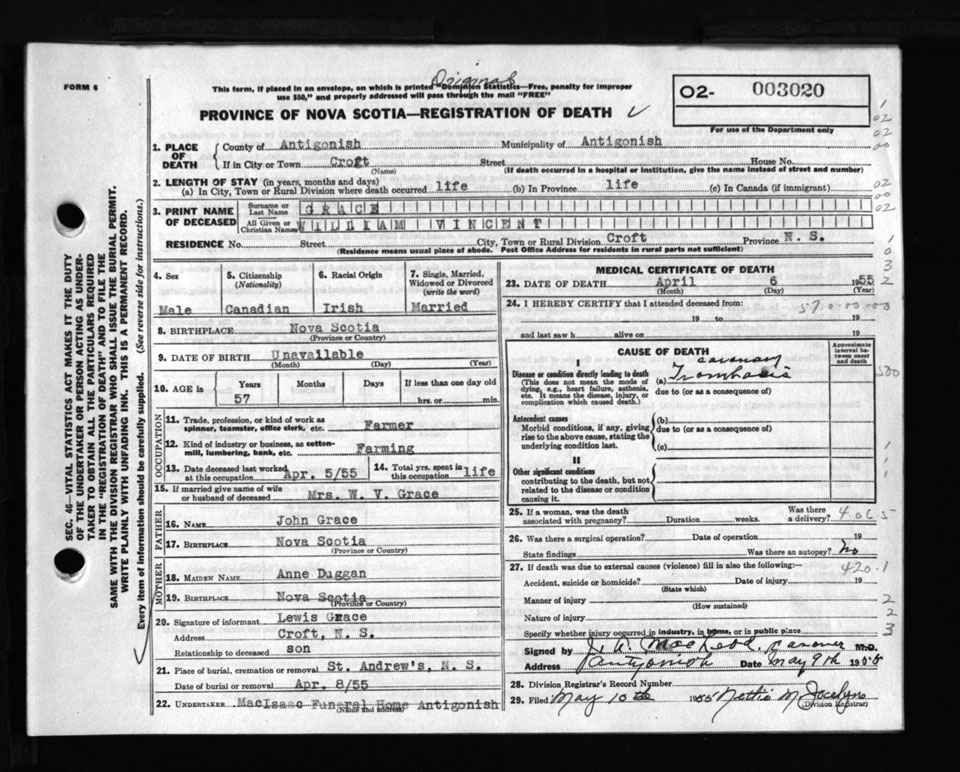 Original
FORM 6
This form, if placed in an envelope, on which is printed "Dominion Statistics—Free, penalty for improper
use $50," and properly addressed will pass through the mail "FREE"
O2- 003020
For use of the Department only
PROVINCE OF NOVA SCOTIA—REGISTRATION OF DEATH
1. PLACE OF DEATH County of Antigonish Municipality of Antigonish
If in City or Town Croft Street House No.
(Name) (If death occurred in a hospital or institution, give the name instead of street and number)
2. LENGTH OF STAY (in years, months and days)
(a) In City, Town or Rural Division where death occurred life (b) In Province life (c) In Canada (if immigrant)
3. PRINT NAME OF DECEASED Surname or Last Name GRACE
All Given or Christian Names WILLIAM VINCENT
RESIDENCE No. Street City, Town or Rural Division Croft Province N. S.
(Residence means usual place of abode. Post Office Address for residents in rural parts not sufficient)
4. Sex Male
5. Citizenship (Nationality) Canadian
6. Racial Origin Irish
7. Single, Married, Widowed or Divorced (write the word) Married
8. BIRTHPLACE Nova Scotia
(Province or Country)
9. DATE OF BIRTH Unavailable
(Month) (Day) (Year)
10. AGE in Years Months Days If less than one day old
57 hrs. or min.
OCCUPATION
11. Trade, profession, or kind of work as
spinner, teamster, office clerk, etc. Farmer
12. Kind of industry or business, as cotton-
mill, lumbering, bank, etc. Farming
13. Date deceased last worked at this occupation Apr. 5/55 14. Total yrs. spent in this occupation life
15. If married give name of wife
or husband of deceased Mrs. W. V. Grace
FATHER
16. NAME John Grace
17. BIRTHPLACE Nova Scotia
(Province or Country)
MOTHER
18. MAIDEN NAME Anne Duggan
19. BIRTHPLACE Nova Scotia
(Province or Country)
20. Signature of informant Lewis Grace
Address Croft, N. S.
Relationship to deceased son
21. Place of burial, cremation or removal St. Andrew's, N. S.
Date of burial or removal Apr. 8/55
22. UNDERTAKER MacIsaac Funeral Home Antigonish
(Name and address)
MEDICAL CERTIFICATE OF DEATH
23. DATE OF DEATH April 6 1955
(Month) (Day) (Year)
24. I HEREBY CERTIFY that I attended deceased from:
19 to 19
and last saw h alive on 19
CAUSE OF DEATH
Approximate interval between onset and death
I
Disease or condition directly leading to death
(This does not mean the mode of
dying, e.g., heart failure, asthenia,
etc. It means the disease, injury, or
complication which caused death.)
(a) coronary Trombosis
due to (or as a consequence of)
Antecedent causes
Morbid conditions, if any, giving
rise to the above cause, stating the
underlying condition last.
(b)
due to (or as a consequence of)
(c)
II
Other significant conditions
contributing to the death, but not
related to the disease or condition
causing it.
25. If a woman, was the death
associated with pregnancy? Duration weeks. Was there a delivery? 4065
26. Was there a surgical operation? Date of operation 19
State findings Was there an autopsy? no
27. If death was due to external causes (violence) fill in also the following:— 420.1
Accident, suicide or homicide? Date of injury 19
(State which)
Manner of injury
(How sustained)
Nature of injury
Specify whether injury occurred in industry, in home, or in public place
Signed by J. W. MacLeod, Coroner M.D.
Address Antigonish Date May 9th 1955
28. Division Registrar's Record Number
29. Filed May 10th 1955 Nettie M. Jocelyn
(Division Registrar)
SEC. 46—VITAL STATISTICS ACT MAKES IT THE DUTY
OF THE UNDERTAKER OR PERSON ACTING AS UNDER-
TAKER TO OBTAIN ALL THE PARTICULARS REQUIRED
IN THE "REGISTRATION OF DEATH" AND TO FILE THE
SAME WITH THE DIVISION REGISTRAR WHO SHALL ISSUE THE BURIAL PERMIT.
WRITE PLAINLY WITH UNFADING INK. THIS IS A PERMANENT RECORD.
Every item of information should be carefully supplied. (See reverse side for instructions.)